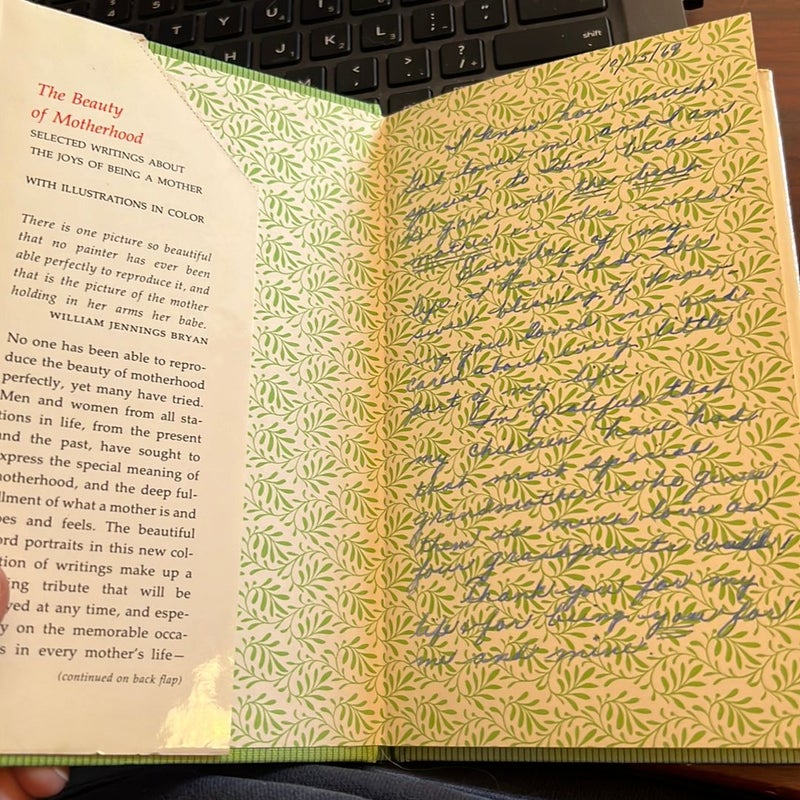 The Beauty
of Motherhood
SELECTED WRITINGS ABOUT
THE JOYS OF BEING A MOTHER
WITH ILLUSTRATIONS IN COLOR
There is one picture so beautiful
that no painter has ever been
able perfectly to reproduce it, and
that is the picture of the mother
holding in her arms her babe.
WILLIAM JENNINGS BRYAN
No one has been able to repro-
duce the beauty of motherhood
perfectly, yet many have tried.
Men and women from all sta-
tions in life, from the present
and the past, have sought to
express the special meaning of
motherhood, and the deep ful-
llment of what a mother is and
oes and feels. The beautiful
ord portraits in this new col-
tion of writings make up a
ing tribute that will be
ved at any time, and espe-
y on the memorable occa-
s in every mother's life—
(continued on back flap)
12/15/69
I know how much
God loves me and I am
special to Him because
he gave me the best
mother in this world!
Everyday of my
life I have had the
sweet blessing of know-
ing you loved me and
cared about every little
part of my life.
I'm grateful that
my children have had
that most special
grandmother who gives
them as much love as
four grandparents could!
Thank you for my
life & for being you for
me and mine!
K
L
J
M
T
Y
U
I
H
N
shift
?
/
>
<